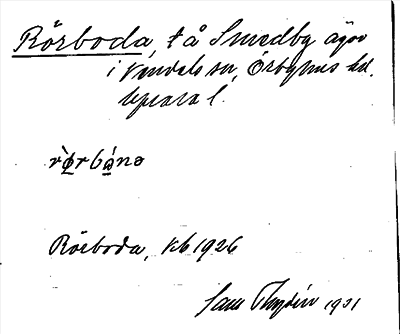 Rörboda, t å Smedby ägor
i Vendels sn, Örbyhus hd.
Uppsala l.
rö̀rbώnə
Rörboda, kb 1926
Sam Thyrén 1931